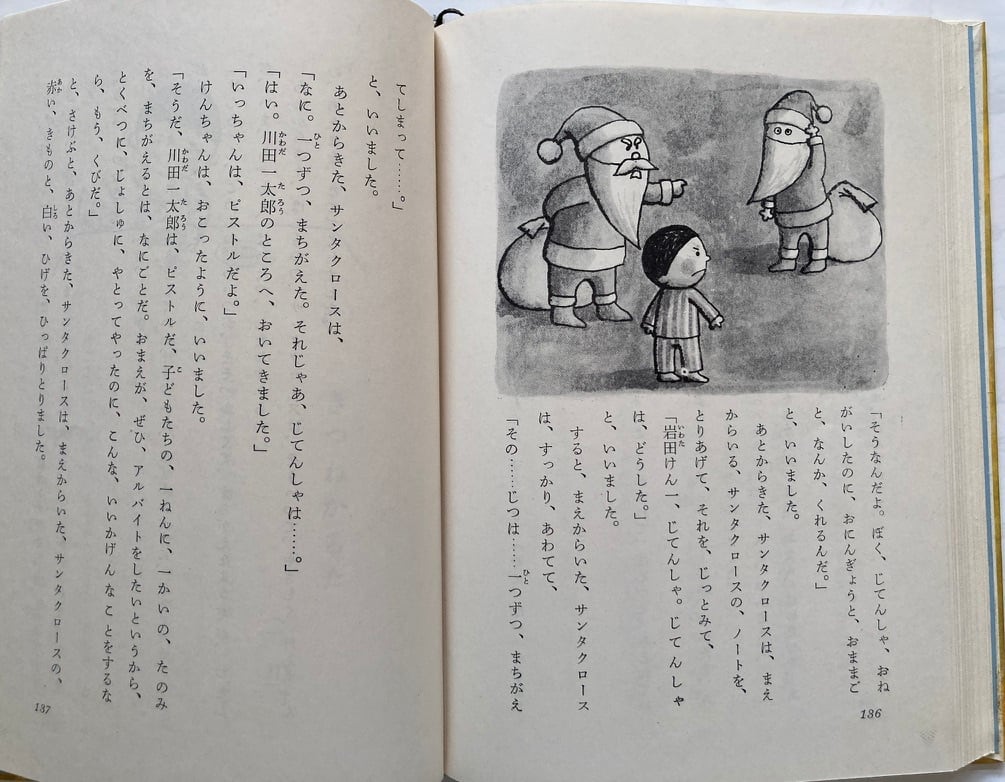 「そうなんだよ。ぼく、じてんしゃ、おね
がいしたのに、おにんぎょうと、おままご
と、なんか、くれるんだ。」
と、いいました。
あとからきた、サンタクロースは、まえ
からいる、サンタクロースの、ノートを、
とりあげて、それを、じっとみて、
「岩田けん一、じてんしゃ。じてんしゃ
は、どうした。」
と、いいました。
すると、まえからいた、サンタクロース
は、すっかり、あわてて、
「その……じつは……一つずつ、まちがえ
136
てしまって……。」
と、いいました。
あとからきた、サンタクロースは、
「なに。一つずつ、まちがえた。それじゃあ、じてんしゃは……。」
「はい。川田一太郎のところへ、おいてきました。」
「いっちゃんは、ピストルだよ。」
けんちゃんは、おこったように、いいました。
「そうだ、川田一太郎は、ピストルだ、子どもたちの、一ねんに、一かいの、たのみ
を、まちがえるとは、なにごとだ。おまえが、ぜひ、アルバイトをしたいというから、
とくべつに、じょしゅに、やとってやったのに、こんな、いいかげんなことをするな
ら、もう、くびだ。」
と、さけぶと、あとからきた、サンタクロースは、まえからいた、サンタクロースの、
赤い、きものと、白い、ひげを、ひっぱりとりました。
137